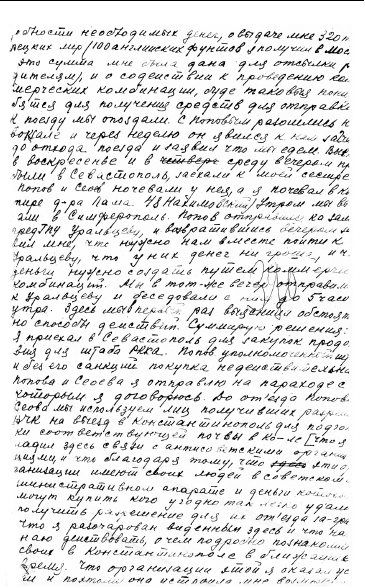 ности необходимых денег, о выдаче мне 320 н
рецких лир /100 английских фунтов я получил в Мос
эта сумма мне была дана для отсылки р
дителям/, и о содействии к проведению ком
мерческих комбинаций, буде таковые пона
бятся для получения средств для отправки
к поезду мы опоздали. С Поповым разошлись н
вокзале и через неделю он явился к нам за
до отхода поезда и заявил что мы едем. Вые
в воскресенье и в четверг среду вечером пр
были в Севастополь, заехали к моей сестре
Попов и Сеов ночевали у нея, а я ночевал в ква
тире д-ра Лама. Утром мы вы
али в Симферополь. Попов отправился ко зам
пред Уральцеву, и возвратившись вечером
сил мне, что нужно нам вместе пойти к
Уральцеву, что у них денег ни гроша, и ч
деньги нужно создать путем коммерче
комбинаций. Мы в тот-же вечер отправили
к Уральцеву и беседовали с ним до 5 часов
утра. Здесь мы первый раз выяснили обстоят
но способы действий. Суммирую решения:
я приехал в Севастополь для закупок продо
вия для штаба РККА. Попов уполномоченный ш
и без его санкций покупка недействительна
Попова и Сеова я отправлю на пароходе с
которым я договорюсь. До от'езда Попова
Сеова мы используем лиц получивших разреш
ЧК на выезд в Константинополь для подго
ки соответствующей почвы в Ко-ле /что я
ладил здесь связи с антисоветскими органи
циями, и что благодаря тому, что эти о
ганизации имеют своих людей в советском
министративном аппарате и деньги которы
могут купить кого угодно так легко удало
получить разрешение для их от'езда за-гра
что я разочарован виденным здесь и что на
наю действовать, о чем подробно познакомлю
своих в Константинополе в ближайшее
время. Что организации этой я оказал ус
и поэтому она исполнила мою